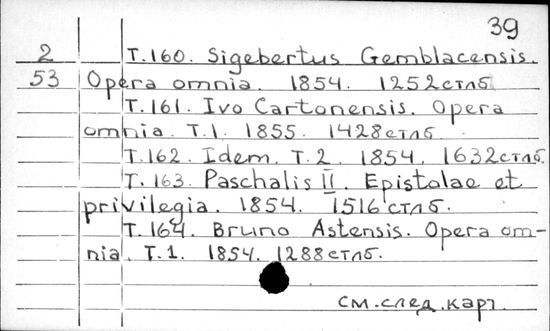 39
2 T.160. Sigebertus Gemblacensis.
53 Opera omnia. 1854. 1252стлб.
T.161. Ivo Cartonensis. Opera
omnia. T.1. 1855. 1428стлб.
T.162. Idem. T.2. 1854. 1632стлб.
T.163. Paschalis II. Epistolae et
privilegia. 1854. 1516стлб.
T.164. Bruno Astensis. Opera om-
nia. T.1. 1854. 1288стлб.
см.след.карт.